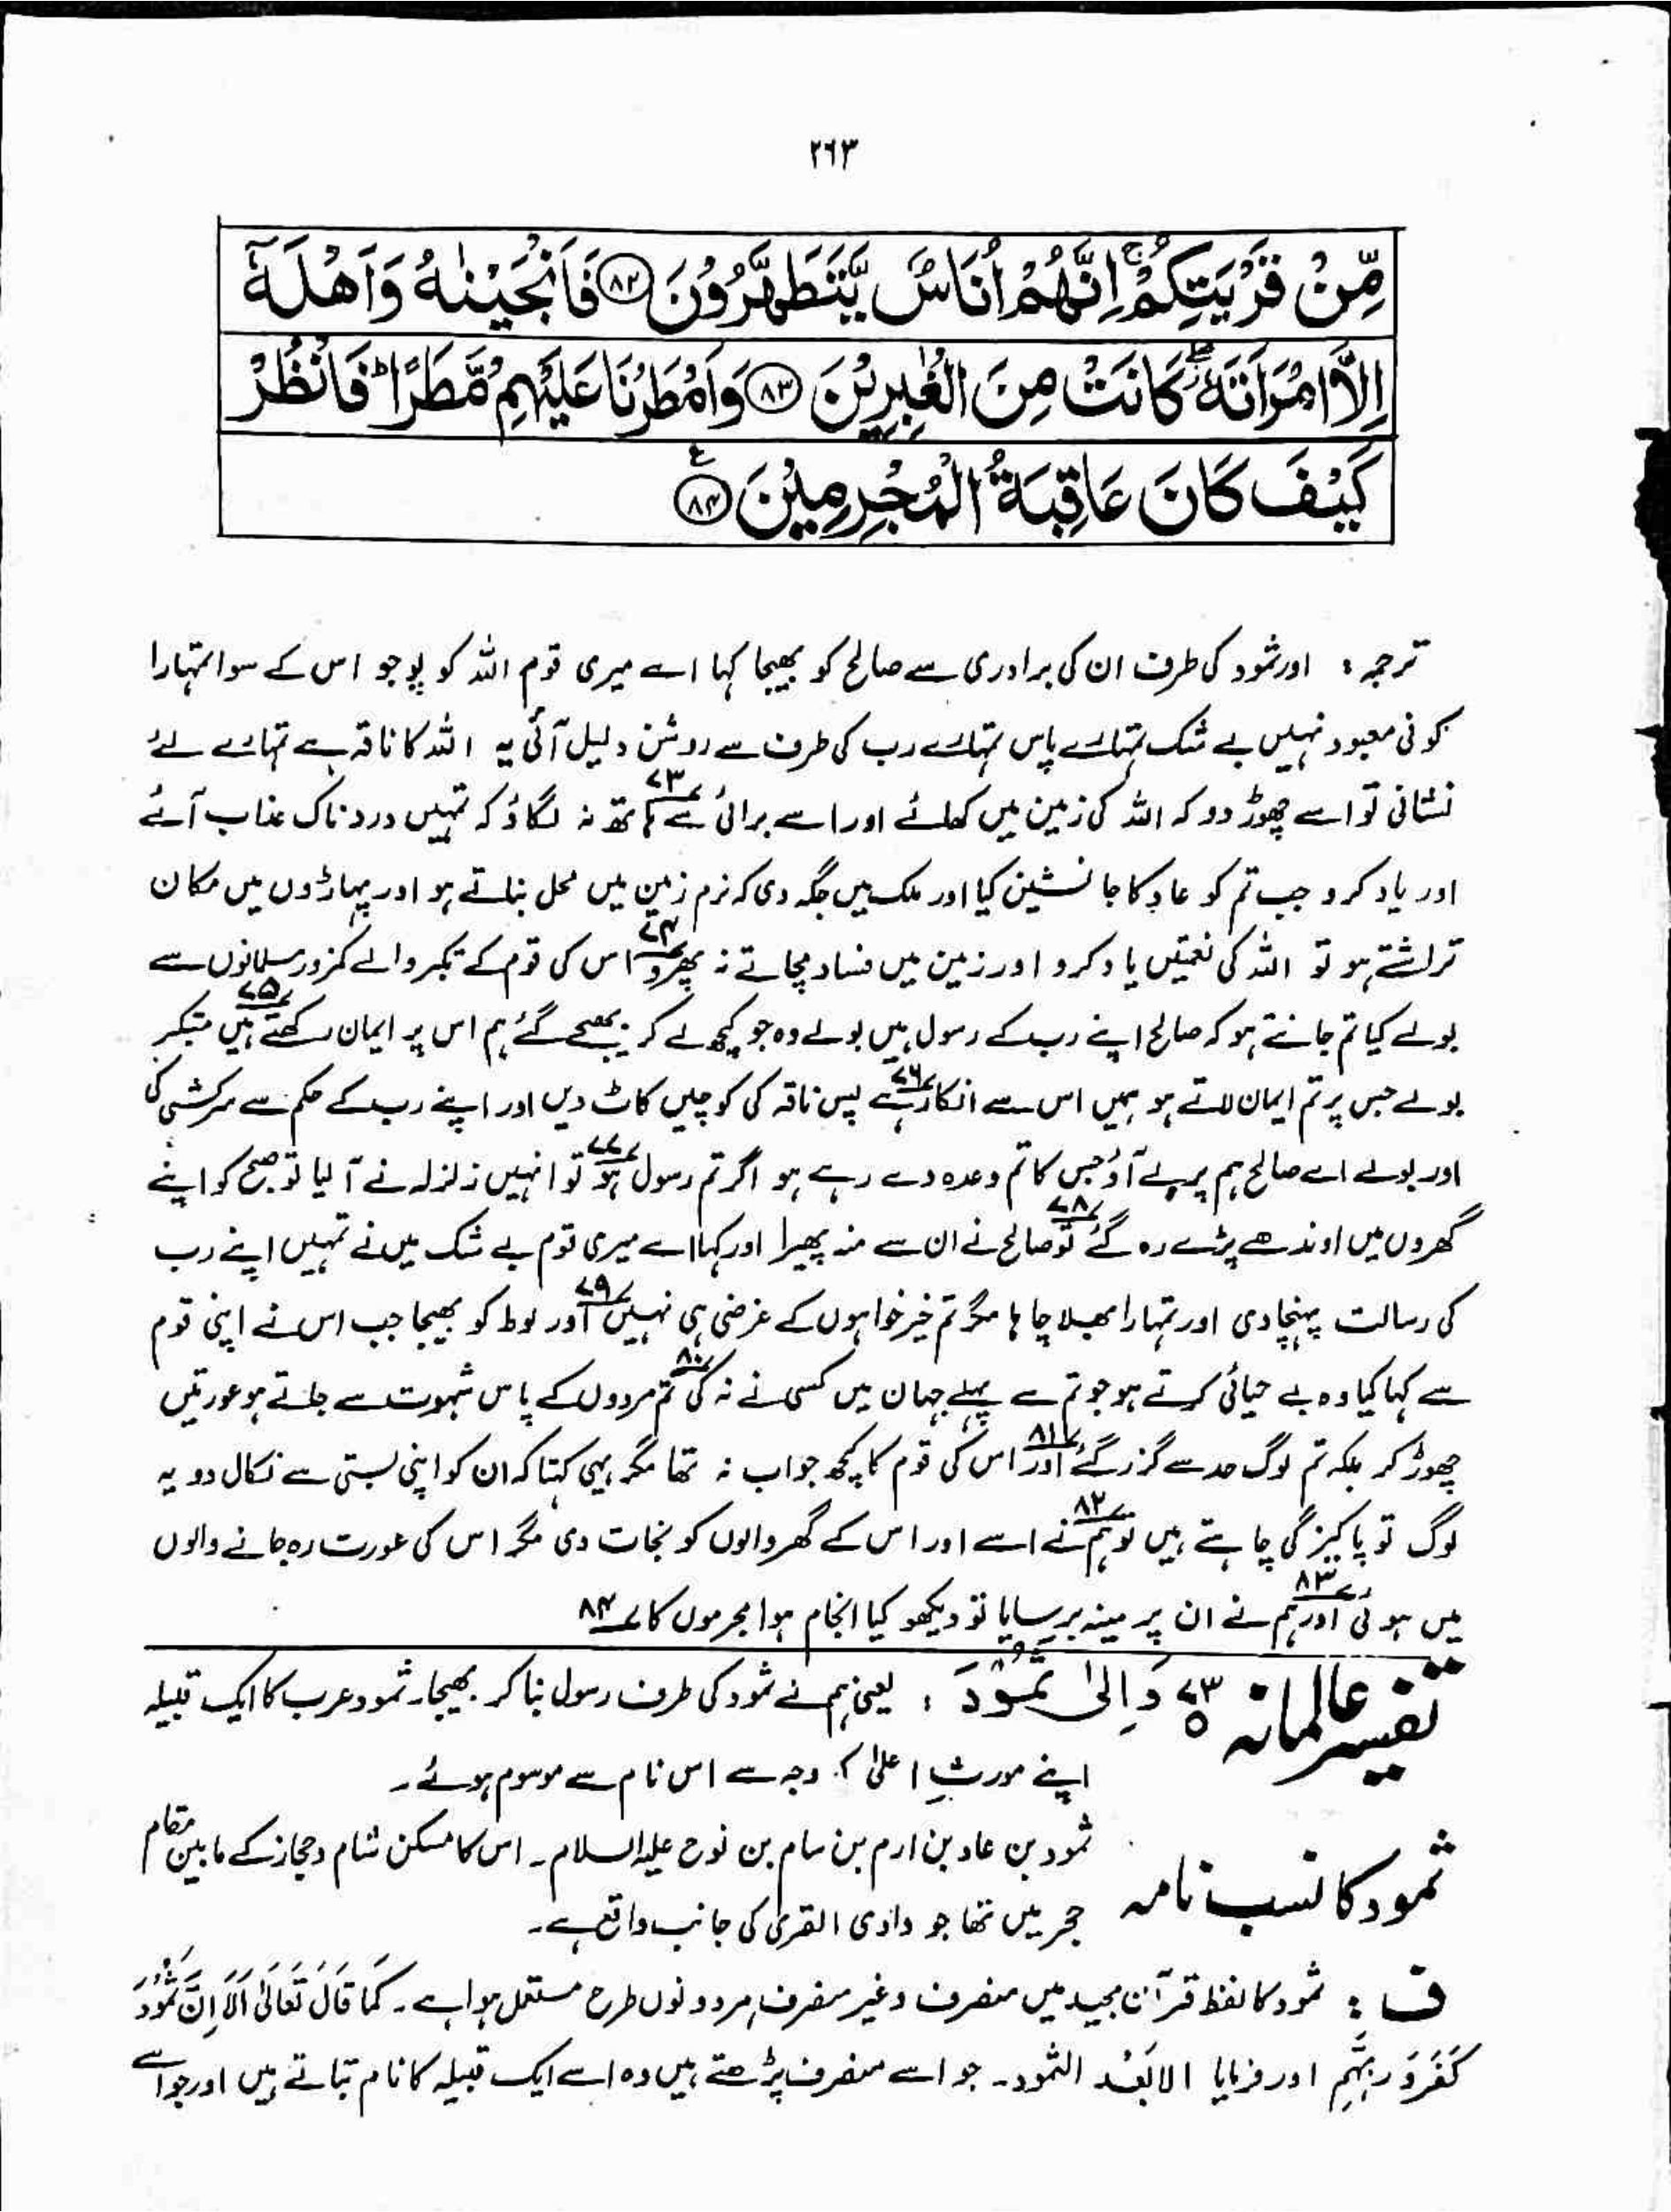 ۲۶۳
مِّنْ قَرْيَتِكُمْ ۚ اِنَّهُمْ اُنَاسٌ يَّتَطَهَّرُوْنَ ﴿۸۲﴾ فَاَنْجَيْنٰهُ وَاَهْلَهٗٓ
اِلَّا امْرَاَتَهٗ ۖ كَانَتْ مِنَ الْغٰبِرِيْنَ ﴿۸۳﴾ وَاَمْطَرْنَا عَلَيْهِمْ مَّطَرًا ؕ فَانْظُرْ
كَيْفَ كَانَ عَاقِبَةُ الْمُجْرِمِيْنَ ﴿۸۴﴾ ع
ترجمہ : اور ثمود کی طرف ان کی برادری سے صالح کو بھیجا کہا اے میری قوم اللہ کو پوجو اس کے سوا تمہارا
کوئی معبود نہیں بے شک تمہارے پاس تمہارے رب کی طرف سے روشن دلیل آئی یہ اللہ کا ناقہ ہے تمہارے لئے
نشانی تو اسے چھوڑ دو کہ اللہ کی زمین میں کھائے اور اسے برائی سے ہاتھ نہ لگاؤ کہ تمہیں دردناک عذاب آئے ۷۳
اور یاد کرو جب تم کو عاد کا جانشین کیا اور ملک میں جگہ دی کہ نرم زمین میں محل بناتے ہو اور پہاڑوں میں مکان
تراشتے ہو تو اللہ کی نعمتیں یاد کرو اور زمین میں فساد مچاتے نہ پھرو ۷۴ اس کی قوم کے تکبر والے کمزور مسلمانوں سے
بولے کیا تم جانتے ہو کہ صالح اپنے رب کے رسول ہیں بولے وہ جو کچھ لے کر بھیجے گئے ہم اس پر ایمان رکھتے ہیں ۷۵ متکبر
بولے جس پر تم ایمان لاتے ہو ہمیں اس سے انکار ہے ۷۶ پس ناقہ کی کوچیں کاٹ دیں اور اپنے رب کے حکم سے سرکشی کی
اور بولے اے صالح ہم پر لے آؤ جس کا تم وعدہ دے رہے ہو اگر تم رسول ہو ۷۷ تو انہیں زلزلہ نے آ لیا تو صبح کو اپنے
گھروں میں اوندھے پڑے رہ گئے ۷۸ تو صالح نے ان سے منہ پھیرا اور کہا اے میری قوم بے شک میں نے تمہیں اپنے رب
کی رسالت پہنچا دی اور تمہارا بھلا چاہا مگر تم خیر خواہوں کے غرضی ہی نہیں ۷۹ اور لوط کو بھیجا جب اس نے اپنی قوم
سے کہا کیا وہ بے حیائی کرتے ہو جو تم سے پہلے جہان میں کسی نے نہ کی ۸۰ تم مردوں کے پاس شہوت سے جاتے ہو عورتیں
چھوڑ کر بلکہ تم لوگ حد سے گزر گئے ۸۱ اور اس کی قوم کا کچھ جواب نہ تھا مگر یہی کہنا کہ ان کو اپنی بستی سے نکال دو یہ
لوگ تو پاکیزگی چاہتے ہیں ۸۲ تو ہم نے اسے اور اس کے گھر والوں کو نجات دی مگر اس کی عورت رہ جانے والوں
میں ہوئی ۸۳ اور ہم نے ان پر مینہ برسایا تو دیکھو کیا انجام ہوا مجرموں کا ۸۴
تفسیر عالمانہ ۷۳ وَاِلیٰ ثَمُوْدَ : یعنی ہم نے ثمود کی طرف رسول بنا کر بھیجا۔ ثمود عرب کا ایک قبیلہ
اپنے مورثِ اعلیٰ کی وجہ سے اس نام سے موسوم ہوئے۔
ثمود کا نسب نامہ ثمود بن عاد بن ارم بن سام بن نوح علیہ السلام۔ اس کا مسکن شام و حجاز کے مابین مقام
حجر میں تھا جو وادی القریٰ کی جانب واقع ہے۔
ف : ثمود کا لفظ قرآن مجید میں منصرف و غیر منصرف ہر دونوں طرح مستعمل ہوا ہے۔ کَمَا قَالَ تَعَالٰی اَلَا اِنَّ ثَمُوْدَ
کَفَرَوْ رَبَّهُمْ اور فرمایا الا بُعْد الثمود۔ جو اسے منصرف پڑھتے ہیں وہ اسے ایک قبیلہ کا نام بتاتے ہیں اور جو اسے